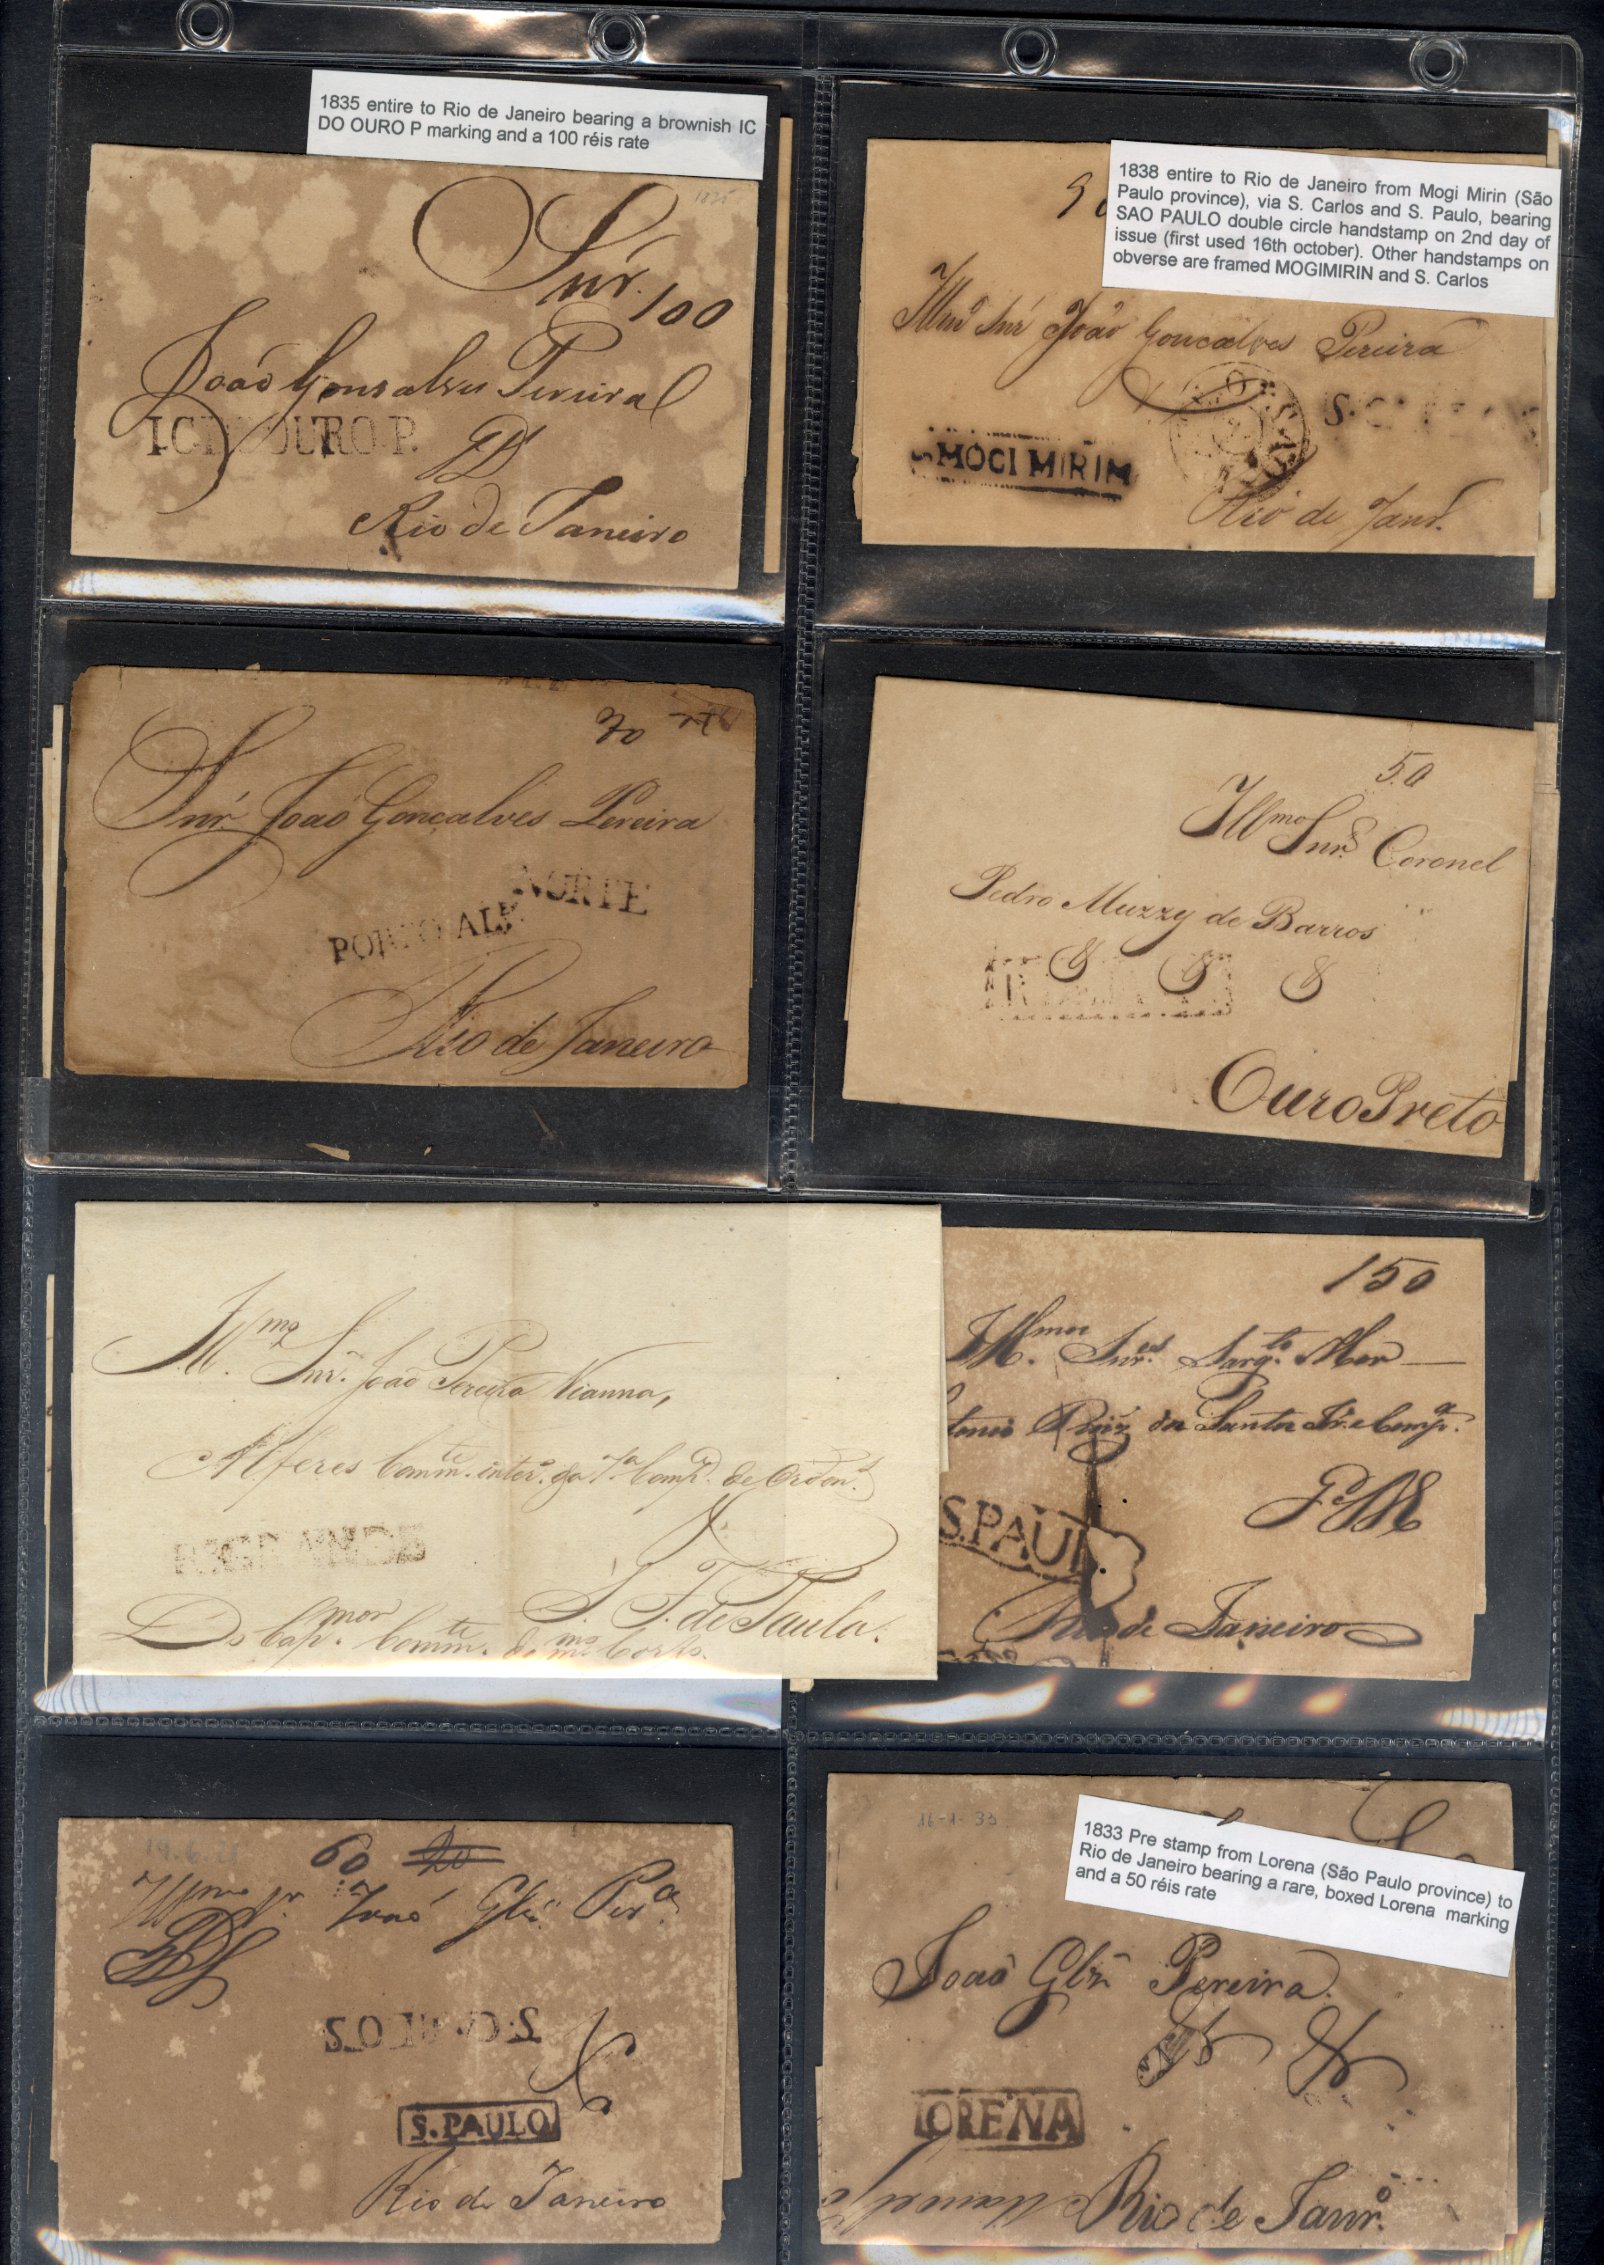 1835 entire to Rio de Janeiro bearing a brownish IC
DO OURO P marking and a 100 réis rate
1835
Snr.
100
João Gonsalves Pereira
I.C. D OURO P.
Rio de Janeiro
1838 entire to Rio de Janeiro from Mogi Mirin (São
Paulo province), via S. Carlos and S. Paulo, bearing
SAO PAULO double circle handstamp on 2nd day of
issue (first used 16th october). Other handstamps on
obverse are framed MOGIMIRIN and S. Carlos
Illmo Snr João Goncalves Pereira
S. C
MOGI MIRIM
Rio de Janr.
Snr. João Gonçalves Pereira
NORTE
PORTO ALE
Rio de Janeiro
50
Illmo Snr. Coronel
Pedro Muzzy de Barros
Ouro Preto
Illmo Snr. João Pereira Vianna,
Alferes Commte. inter.o da 1.a Comp.a de Orden.s
R. GRANDE
S. F. de Paula.
Do Cap.mor Commte. do mmo Corpo.
150
Illmos Snres. Sargto. Mor
Santos Sr. e Comp.a
S. PAUL
Rio de Janeiro
60 20
Illmo Sr João Glz Pera
S. PAULO
Rio de Janeiro
16-1-33
1833 Pre stamp from Lorena (São Paulo province) to
Rio de Janeiro bearing a rare, boxed Lorena marking
and a 50 réis rate
João Glz Pereira.
LORENA
Rio de Janro.